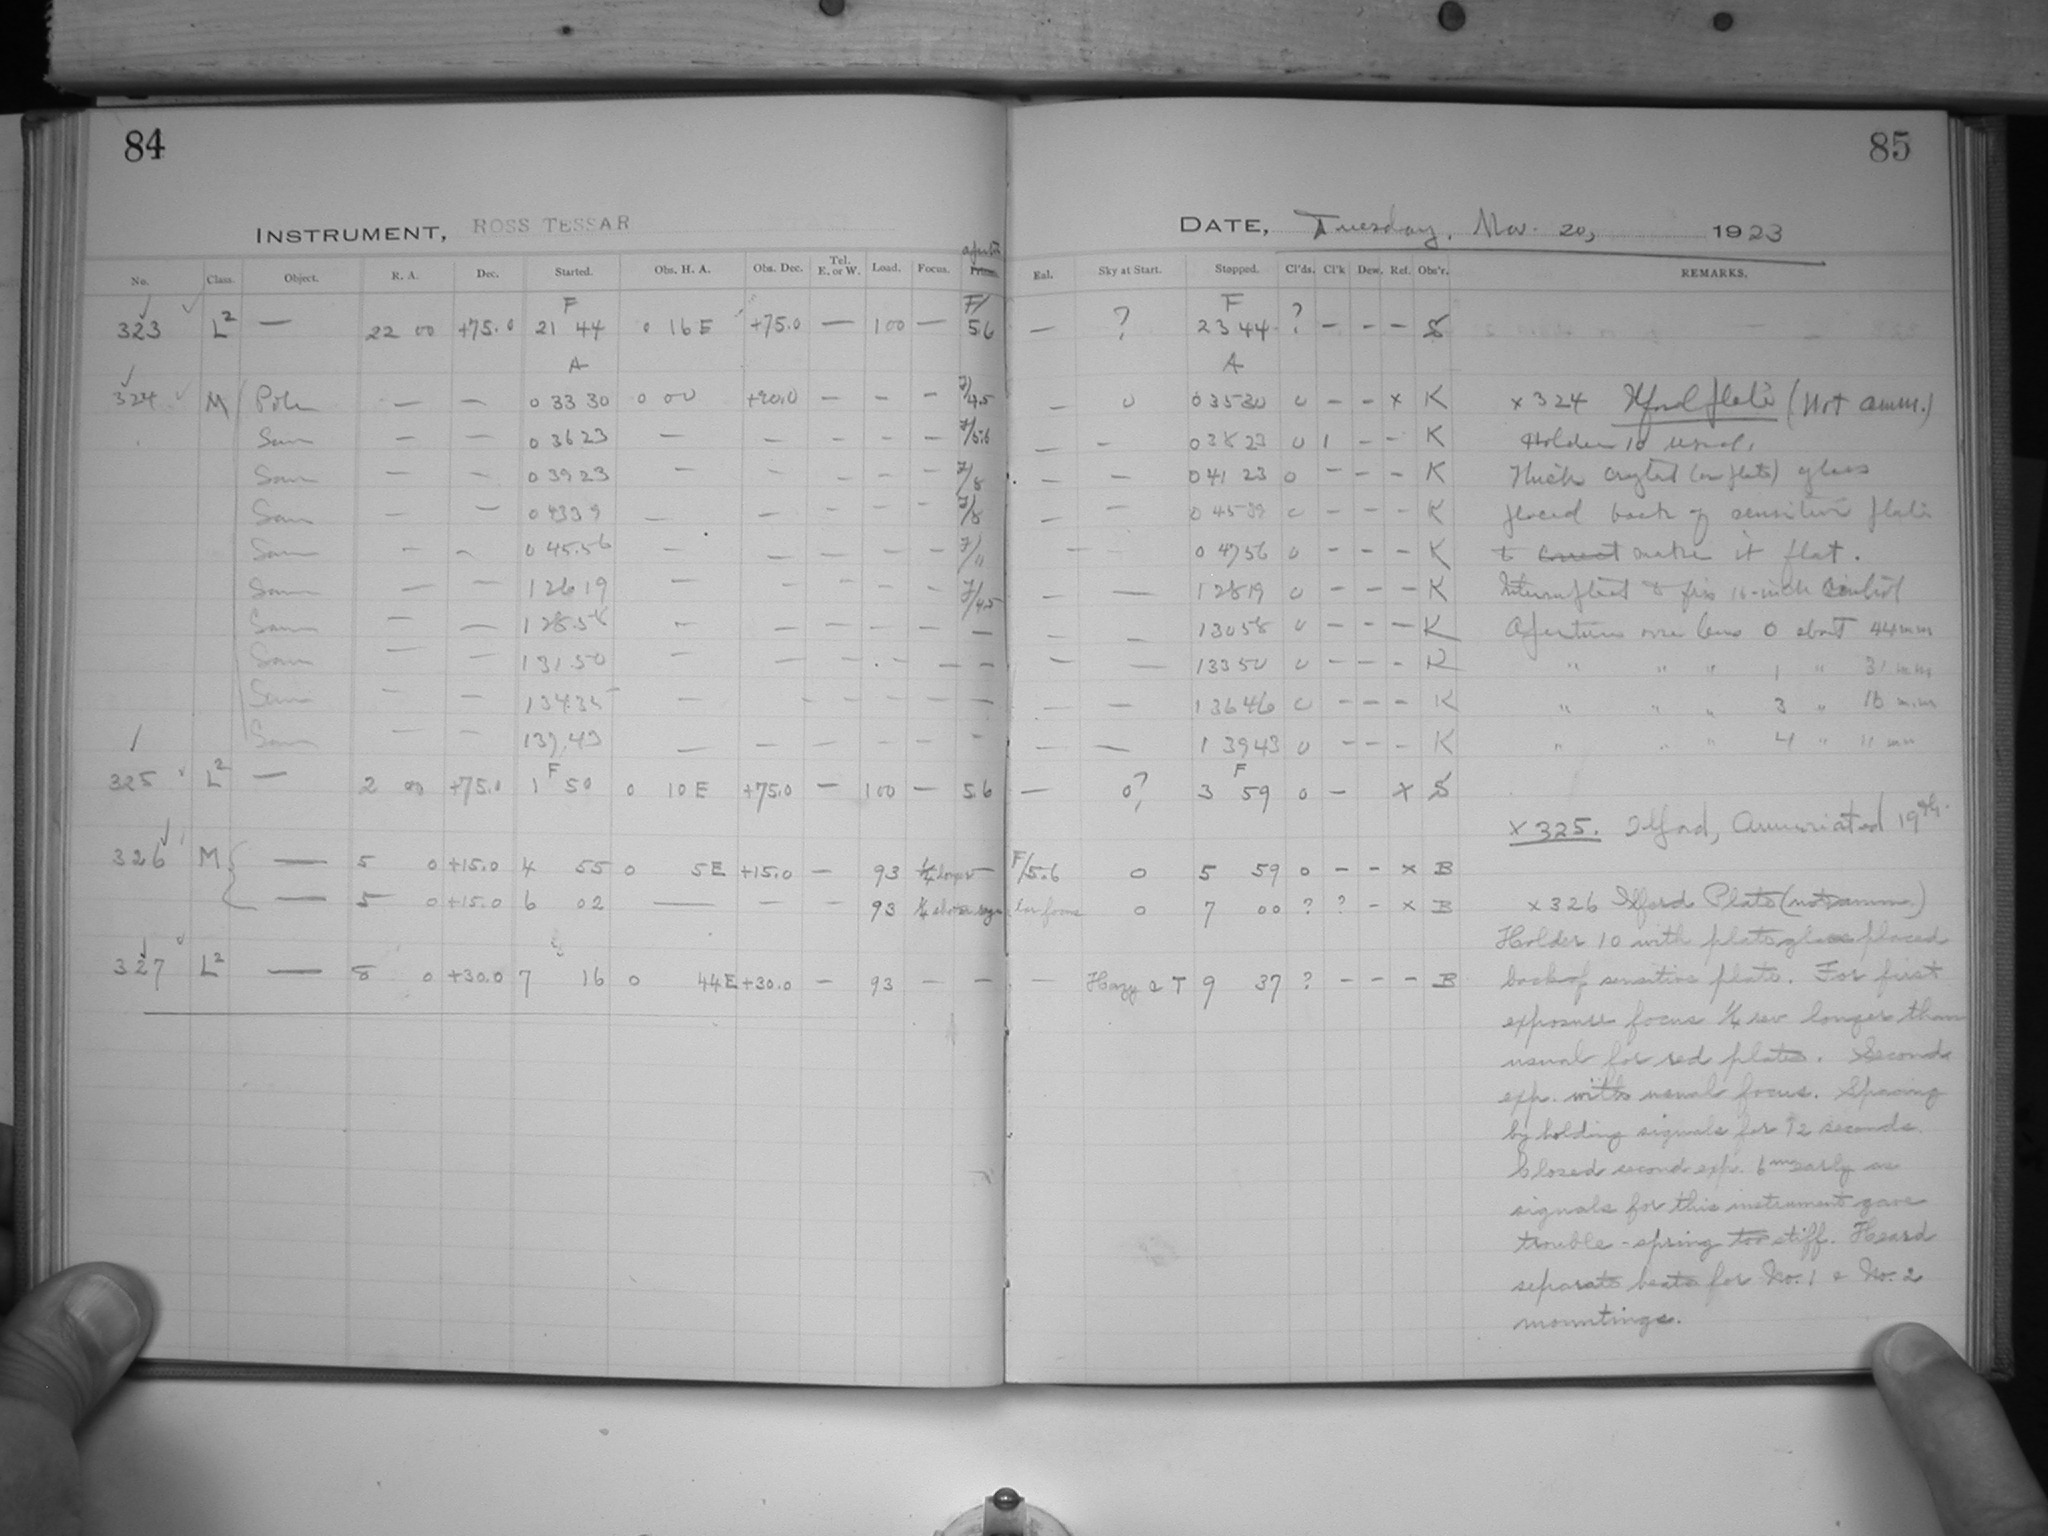 84
85
INSTRUMENT, ROSS TESSAR
DATE, Tuesday, Nov. 20, 1923
No. Class. Object. R. A. Dec. Started. Obs. H. A. Obs. Dec. Tel. E. or W. Load. Focus. Eal. Sky at Start. Stopped. Cl'ds. Cl'k Dew. Ref. Obs'r. REMARKS.
F F/ F
323 L² — 22 00 +75.0 21 44 0 16 E +75.0 — 100 — 5.6 — ? 23 44 ? – – – S
A A
324 M Pole — — 0 33 30 0 00 +90.0 – – – F/4.5 – 0 0 35 30 0 – – x K
Same – – 0 36 23 — – – – – F/5.6 – – 0 38 23 0 1 – – K
Same – – 0 39 23 – – – – – F/8 – – 0 41 23 0 – – – K
Same – – 0 43 39 – – – – – F/8 – – 0 45 39 0 – – – K
Same – – 0 45.56 – – – – – F/11 – – 0 47 56 0 – – – K
Same – – 1 26 19 – – – – – F/4.5 – — 1 28 19 0 – – – K
Same – – 1 28.58 – – – – – – – – 1 30 58 0 – – – K
Same – – 1 31.50 – – – – – – – – 1 33 50 0 – – – K
Same – – 1 34.35 – – – – – – – – 1 36 46 0 – – – K
Same – – 1 37.43 – – – – – – – – 1 39 43 0 – – – K
F F
325 L² — 2 00 +75.0 1 50 0 10 E +75.0 – 100 – 5.6 — 0? 3 59 0 – x S
326 M — 5 0 +15.0 4 55 0 5 E +15.0 – 93 ¼ longer – F/5.6 0 5 59 0 – – x B
— 5 0 +15.0 6 02 — – – 93 0 7 00 ? ? – x B
327 L² — 8 0 +30.0 7 16 0 44 E +30.0 – 93 – – – Hazy & T 9 37 ? – – – B
x 324 Ilford plate (Not amm.)
Holder 10 usual.
Thick glass
placed back of sensitive plate
to make it flat.
16-inch
Aperture over lens 0 about 44 mm
" " " 1 " 31 mm
" " " 3 " 16 mm
" " " 4 " 11 mm
x 325. Ilford, Ammoniated 19th.
x 326 Ilford Plate (not amm.)
Holder 10 with plate glass placed
back of sensitive plate. For first
exposure focus ¼ rev longer than
usual for red plates. Second
exp. with usual focus. Spacing
by holding signals for 12 seconds.
Closed second exp. 6m early as
signals for this instrument gave
trouble - spring too stiff. Heard
separate beats for No. 1 & No. 2
mountings.